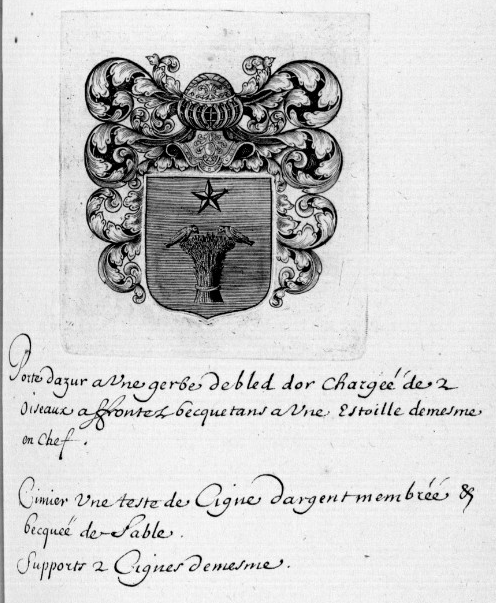 Porte dazur a Vne gerbe debled dor Chargeé de 2
Oiseaux affrontez becquetans a Vne Estoille demesme
en Chef.
Cimier Vne teste de Cigne dargent membréé &
becqueé de Sable.
Supports 2 Cignes demesme.